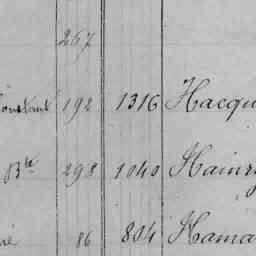 267
onstant 192 1316 Hacqu
Bte 298 1040 Hainz
86 804 Hama